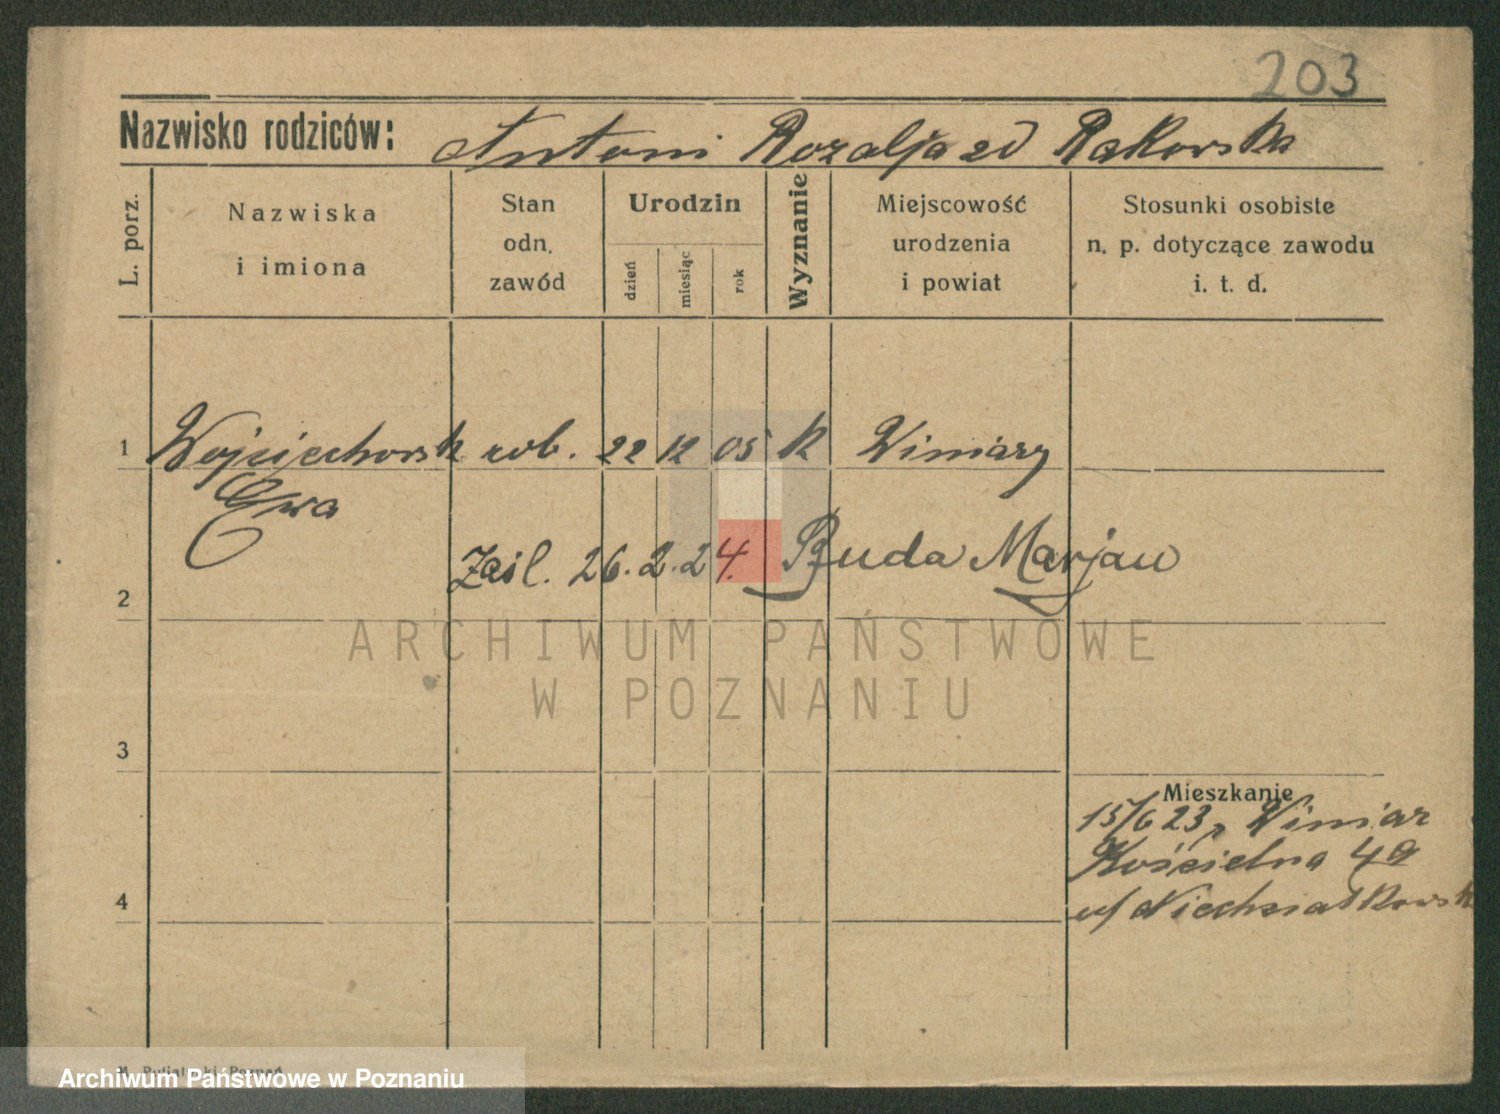 203
Nazwisko rodziców: Antoni Rozalja zd Rakowska
L. porz.
Nazwiska
i imiona
Stan
odn.
zawód
Urodzin
dzień
miesiąc
rok
Wyznanie
Miejscowość
urodzenia
i powiat
Stosunki osobiste
n. p. dotyczące zawodu
i. t. d.
1 Wojciechowsk rob. 22 12 05 k Winiary
Ewa
2 Zaśl. 26.2.24. Buda Marjan
ARCHIWUM PAŃSTWOWE
W POZNANIU
3
Mieszkanie
15/6 23, Winiar
Kościelna
4
Archiwum Państwowe w Poznaniu